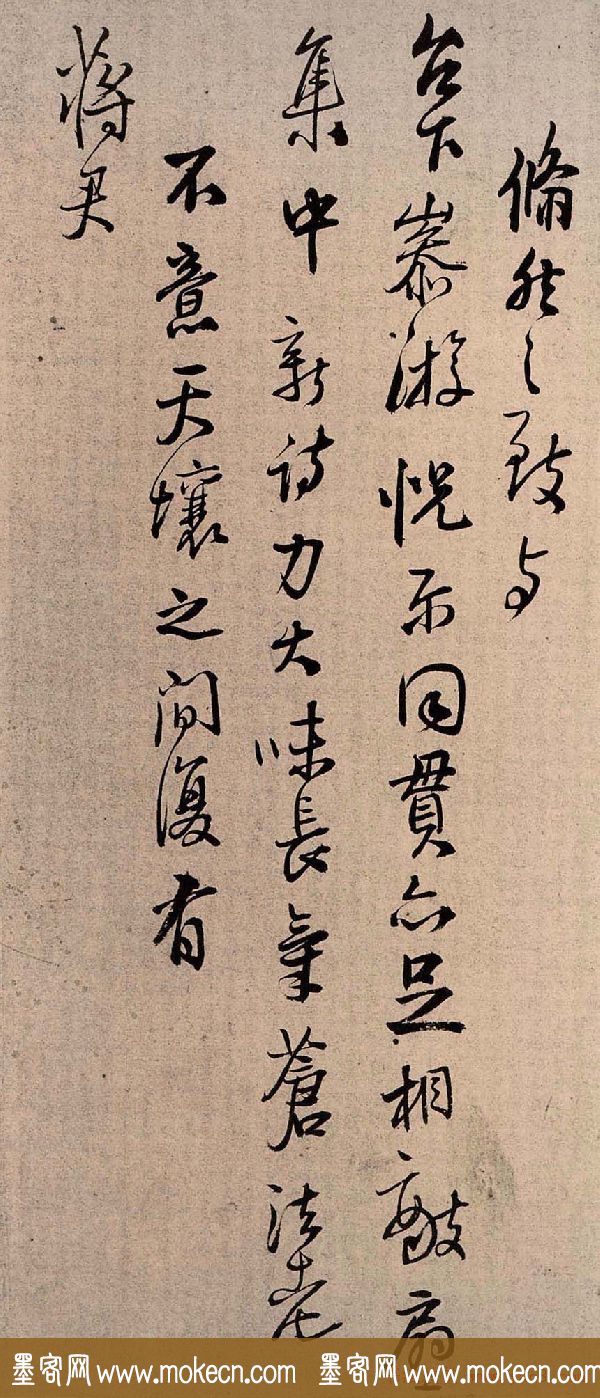 翛然之致与
台下游恍尓同貫亦足相敵
集中新詩力大味長氣蒼法老
不意天壤之間復有
蔣君
墨客网 www.mokecn.com 墨客网 www.mokecn.com